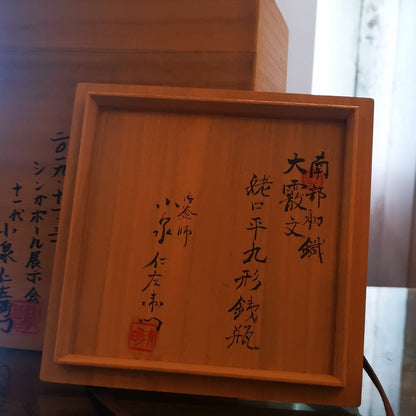 南部砂鐵
大霰文
姥口平丸形銕瓶
御釜師
小泉仁左衛門
二〇一九・十一・三
シンガポール展示会
十一代小泉仁左衛門